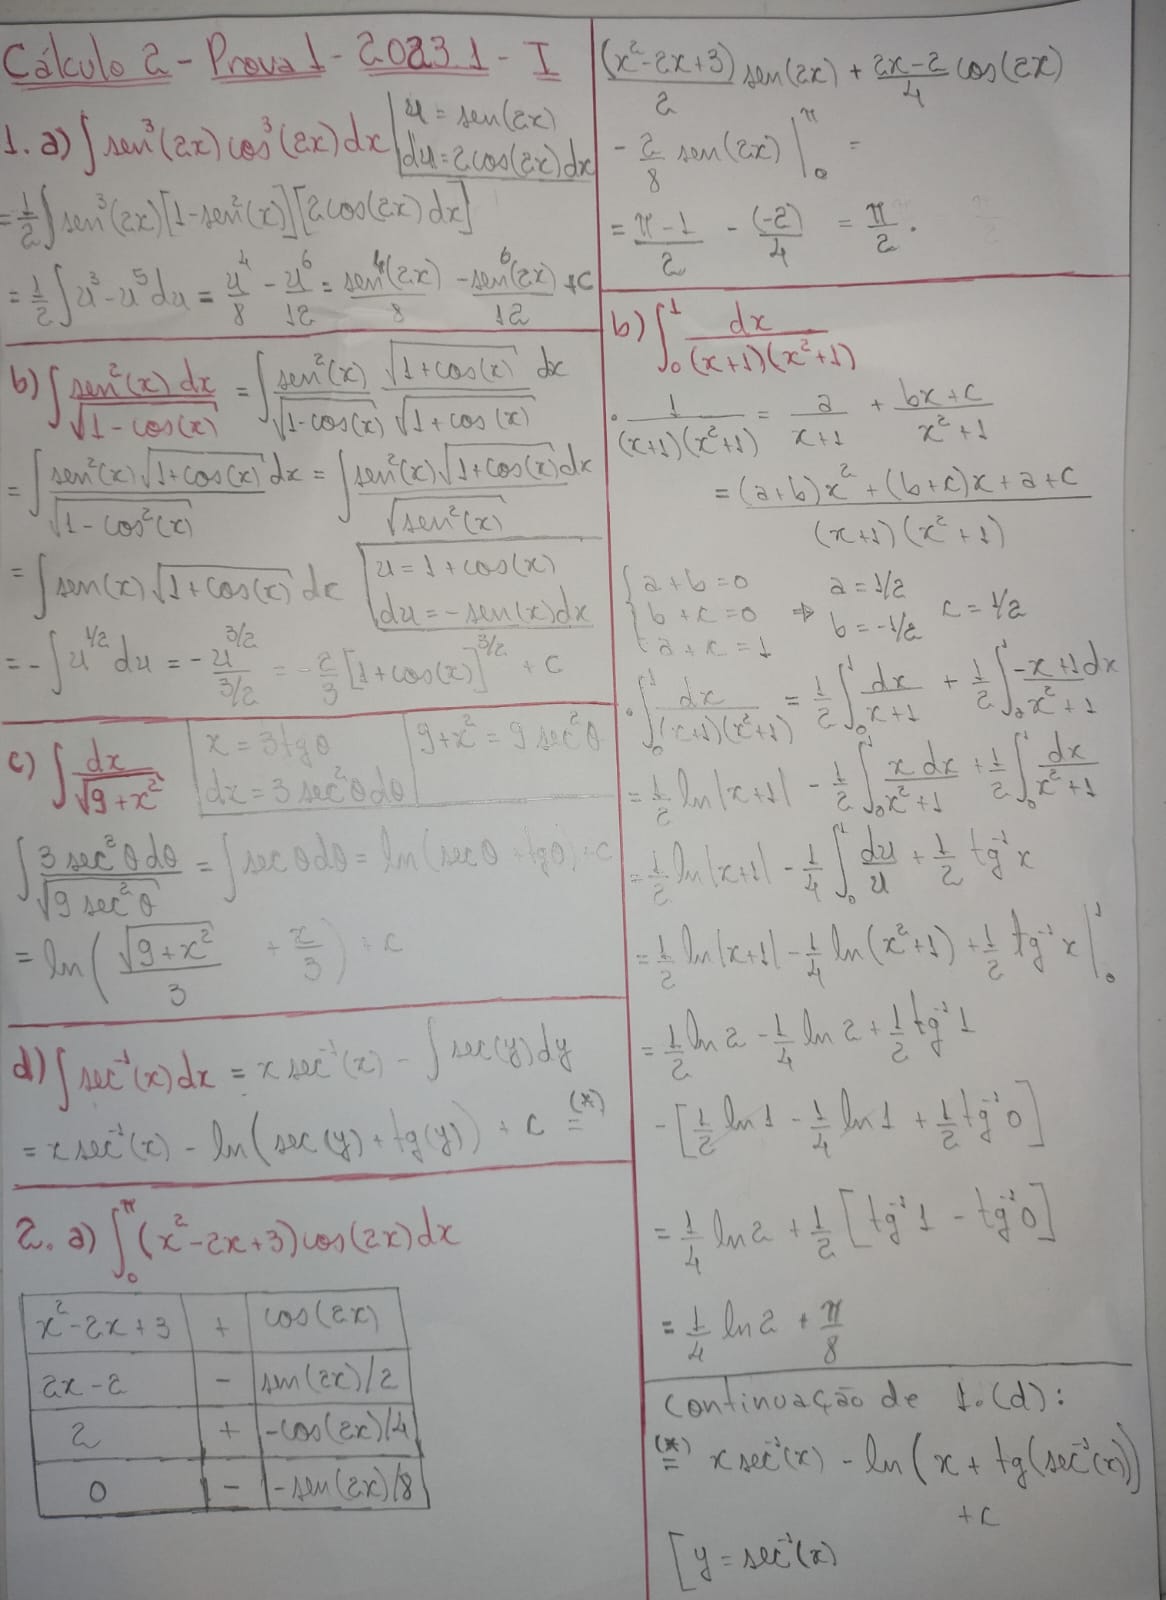 Cálculo 2 - Prova 1 - 2023.1 - I
1. a) ∫ sen³(2x) cos³(2x) dx | u = sen(2x)
du = 2cos(2x)dx
= 1/2 ∫ sen³(2x) [1-sen²(x)] [2cos(2x) dx]
= 1/2 ∫ u³ - u⁵ du = u⁴/8 - u⁶/12 = sen⁴(2x)/8 - sen⁶(2x)/12 + C
b) ∫ sen²(x) dx/√(1-cos(x)) = ∫ sen²(x)/√(1-cos(x)) √(1+cos(x))/√(1+cos(x)) dx
= ∫ sen²(x) √(1+cos(x)) dx/√(1-cos²(x)) = ∫ sen²(x) √(1+cos(x)) dx/√(sen²(x))
= ∫ sen(x) √(1+cos(x)) dx | u = 1+cos(x)
du = -sen(x)dx
= - ∫ u^(1/2) du = - u^(3/2)/(3/2) = - 2/3 [1+cos(x)]^(3/2) + C
c) ∫ dx/√(9+x²) | x = 3tgθ | 9+x² = 9 sec²θ
dx = 3 sec²θ dθ
∫ 3 sec²θ dθ/√(9 sec²θ) = ∫ sec θ dθ = ln(sec θ + tg θ) + C
= ln(√(9+x²)/3 + x/3) + C
d) ∫ sec⁻¹(x) dx = x sec⁻¹(x) - ∫ sec(y) dy
= x sec⁻¹(x) - ln(sec(y) + tg(y)) + C (*)=
2. a) ∫₀^π (x²-2x+3) cos(2x) dx
x²-2x+3 | + | cos(2x)
2x-2 | - | sen(2x)/2
2 | + | -cos(2x)/4
0 | - | -sen(2x)/8
(x²-2x+3)/2 sen(2x) + 2x-2/4 cos(2x)
- 2/8 sen(2x) |₀^π =
= π-1/2 - (-2)/4 = π/2 .
b) ∫₀¹ dx/(x+1)(x²+1)
• 1/(x+1)(x²+1) = a/x+1 + bx+c/x²+1
= (a+b)x² + (b+c)x + a+c/(x+1)(x²+1)
{ a+b=0
b+c=0 ⇒ a=1/2 b=-1/2 c=1/2
a+c=1
• ∫₀¹ dx/(x+1)(x²+1) = 1/2 ∫₀¹ dx/x+1 + 1/2 ∫₀¹ -x+1dx/x²+1
= 1/2 ln|x+1| - 1/2 ∫₀¹ x dx/x²+1 + 1/2 ∫₀¹ dx/x²+1
= 1/2 ln|x+1| - 1/4 ∫₀¹ du/u + 1/2 tg⁻¹ x
= 1/2 ln|x+1| - 1/4 ln(x²+1) + 1/2 tg⁻¹ x |₀¹
= 1/2 ln 2 - 1/4 ln 2 + 1/2 tg⁻¹ 1
- [1/2 ln 1 - 1/4 ln 1 + 1/2 tg⁻¹ 0]
= 1/4 ln 2 + 1/2 [tg⁻¹ 1 - tg⁻¹ 0]
= 1/4 ln 2 + π/8
Continuação de 1.(d):
(*)= x sec⁻¹(x) - ln(x + tg(sec⁻¹(x)))
+ C
[ y = sec⁻¹(x)